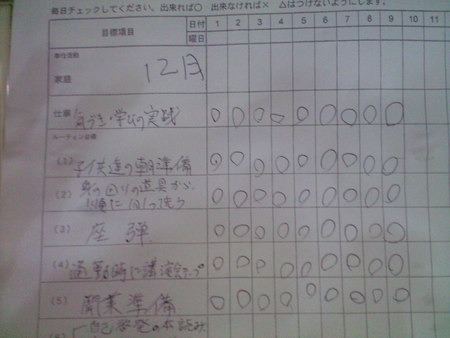 毎日チェックしてください。出来れば○ 出来なければ× △はつけないようにします。
目標項目 日付 1 2 3 4 5 6 7 8 9 10 11
曜日
奉仕活動
家庭 12月
仕事 気づき・学びの実践 ○ ○ ○ ○ ○ ○ ○ ○ ○
ルーティン行動
(1) 子供達の朝準備 ○ ○ ○ ○ ○ ○ ○ ○ ○
(2) 身の回りの道具から ○ ○ ○ ○ ○ ○ ○ ○ ○
順に
(3) 座弾 ○ ○ ○ ○ ○ ○ ○ ○ ○
(4) 運転時に講演テープ ○ ○ ○ ○ ○ ○ ○ ○ ○
(5) 開業準備 ○ ○ ○ ○ ○ ○ ○ ○ ○
自己啓発の本読み